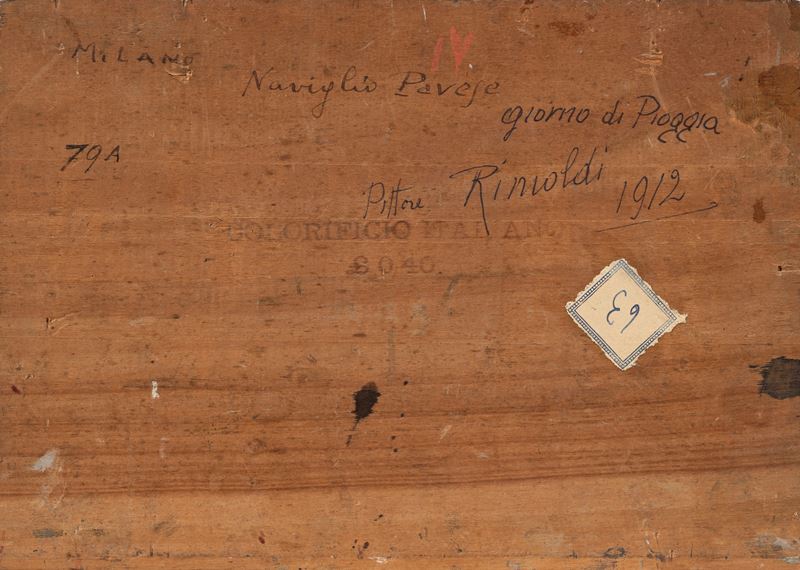 MILANO
17
Naviglio Pavese
giorno di Pioggia
79A
Pittore Rimoldi 1912
COLORIFICIO ITALIANO
63